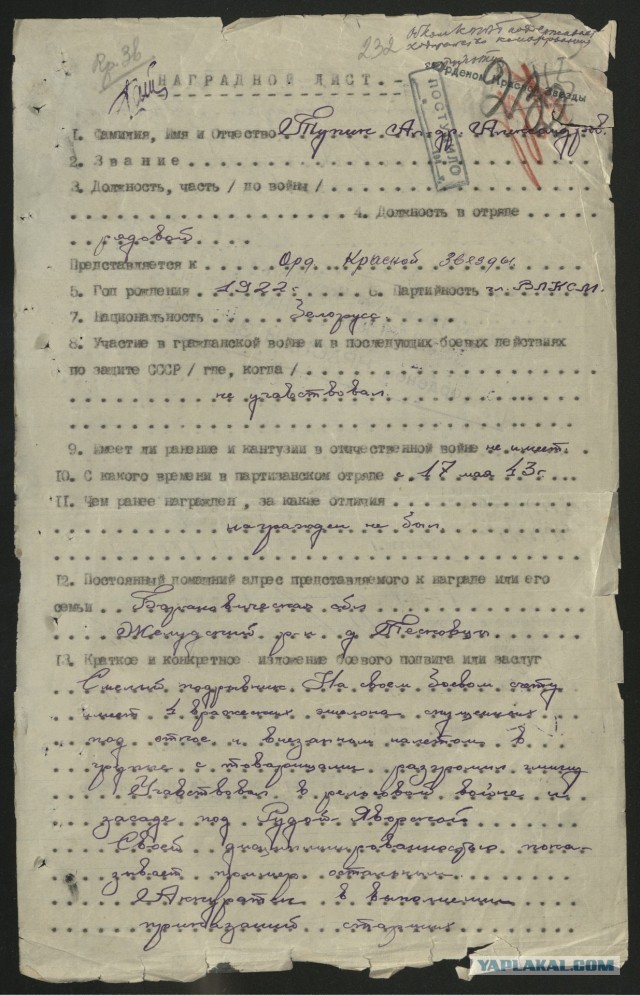 232
НАГРАДНОЙ ЛИСТ.
Орденом Красной Звезды
ПОСТУПИЛО
1. Фамилия, Имя и Отчество Ступин Андр. Александров.
2. Звание
3. Должность, часть / до войны /
4. Должность в отряде
рядовой
Представляется к Орд Красной Звезды
5. Год рождения 1922 г 6. Партийность чл. ВЛКСМ.
7. Национальность Белорусс
8. Участие в гражданской войне и в последующих боевых действиях
по защите СССР / где, когда /
не участвовал
9. Имеет ли ранение и кантузии в отечественной войне не имеет
10. С какого времени в партизанском отряде с 17 мая 43 г
11. Чем ранее награжден, за какие отличия
награжден не был
12. Постоянный домашний адрес представляемого к награде или его
семьи Барановическая обл
р-н д.
13. Краткое и конкретное изложение боевого подвига или заслуг
Смелый подрывник. На своем боевом счету
имеет 4 вражеских эшелона спущенных
под откос и внезапным налетом в
группе с товарищами разгромил
Участвовал в рельсовой войне и
засаде под Рудой Яворской
Своей дисциплинированностью пока-
зывает пример остальным
Аккуратен в выполнении
приказаний старших
YAPLAKAL.COM